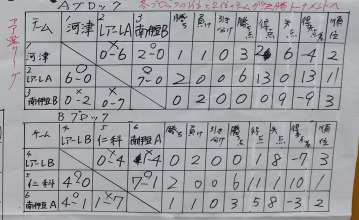 Aブロック
各ブロックの1位と2位
決勝トナメントへ
予選リーグ
チーム 河津 レアールA 南伊豆B 勝ち 負け 引き分け 勝点 得点 失点 得失点 順位
1 河津 0-6 2-0 1 1 0 3 2 6 -4 2
2 レアールA 6-0 7-0 2 0 0 6 13 0 13 1
3 南伊豆B 0-2 0-7 0 2 0 0 0 9 -9 3
Bブロック
チーム レアールB 仁科 南伊豆A 勝ち 負け 引き分け 勝点 得点 失点 得失点 順位
4 レアールB 0-4 1-4 0 2 0 0 1 8 -7 3
5 仁科 4-0 7-1 2 0 0 6 11 1 10 1
6 南伊豆A 4-1 1-7 1 1 0 3 5 8 -3 2